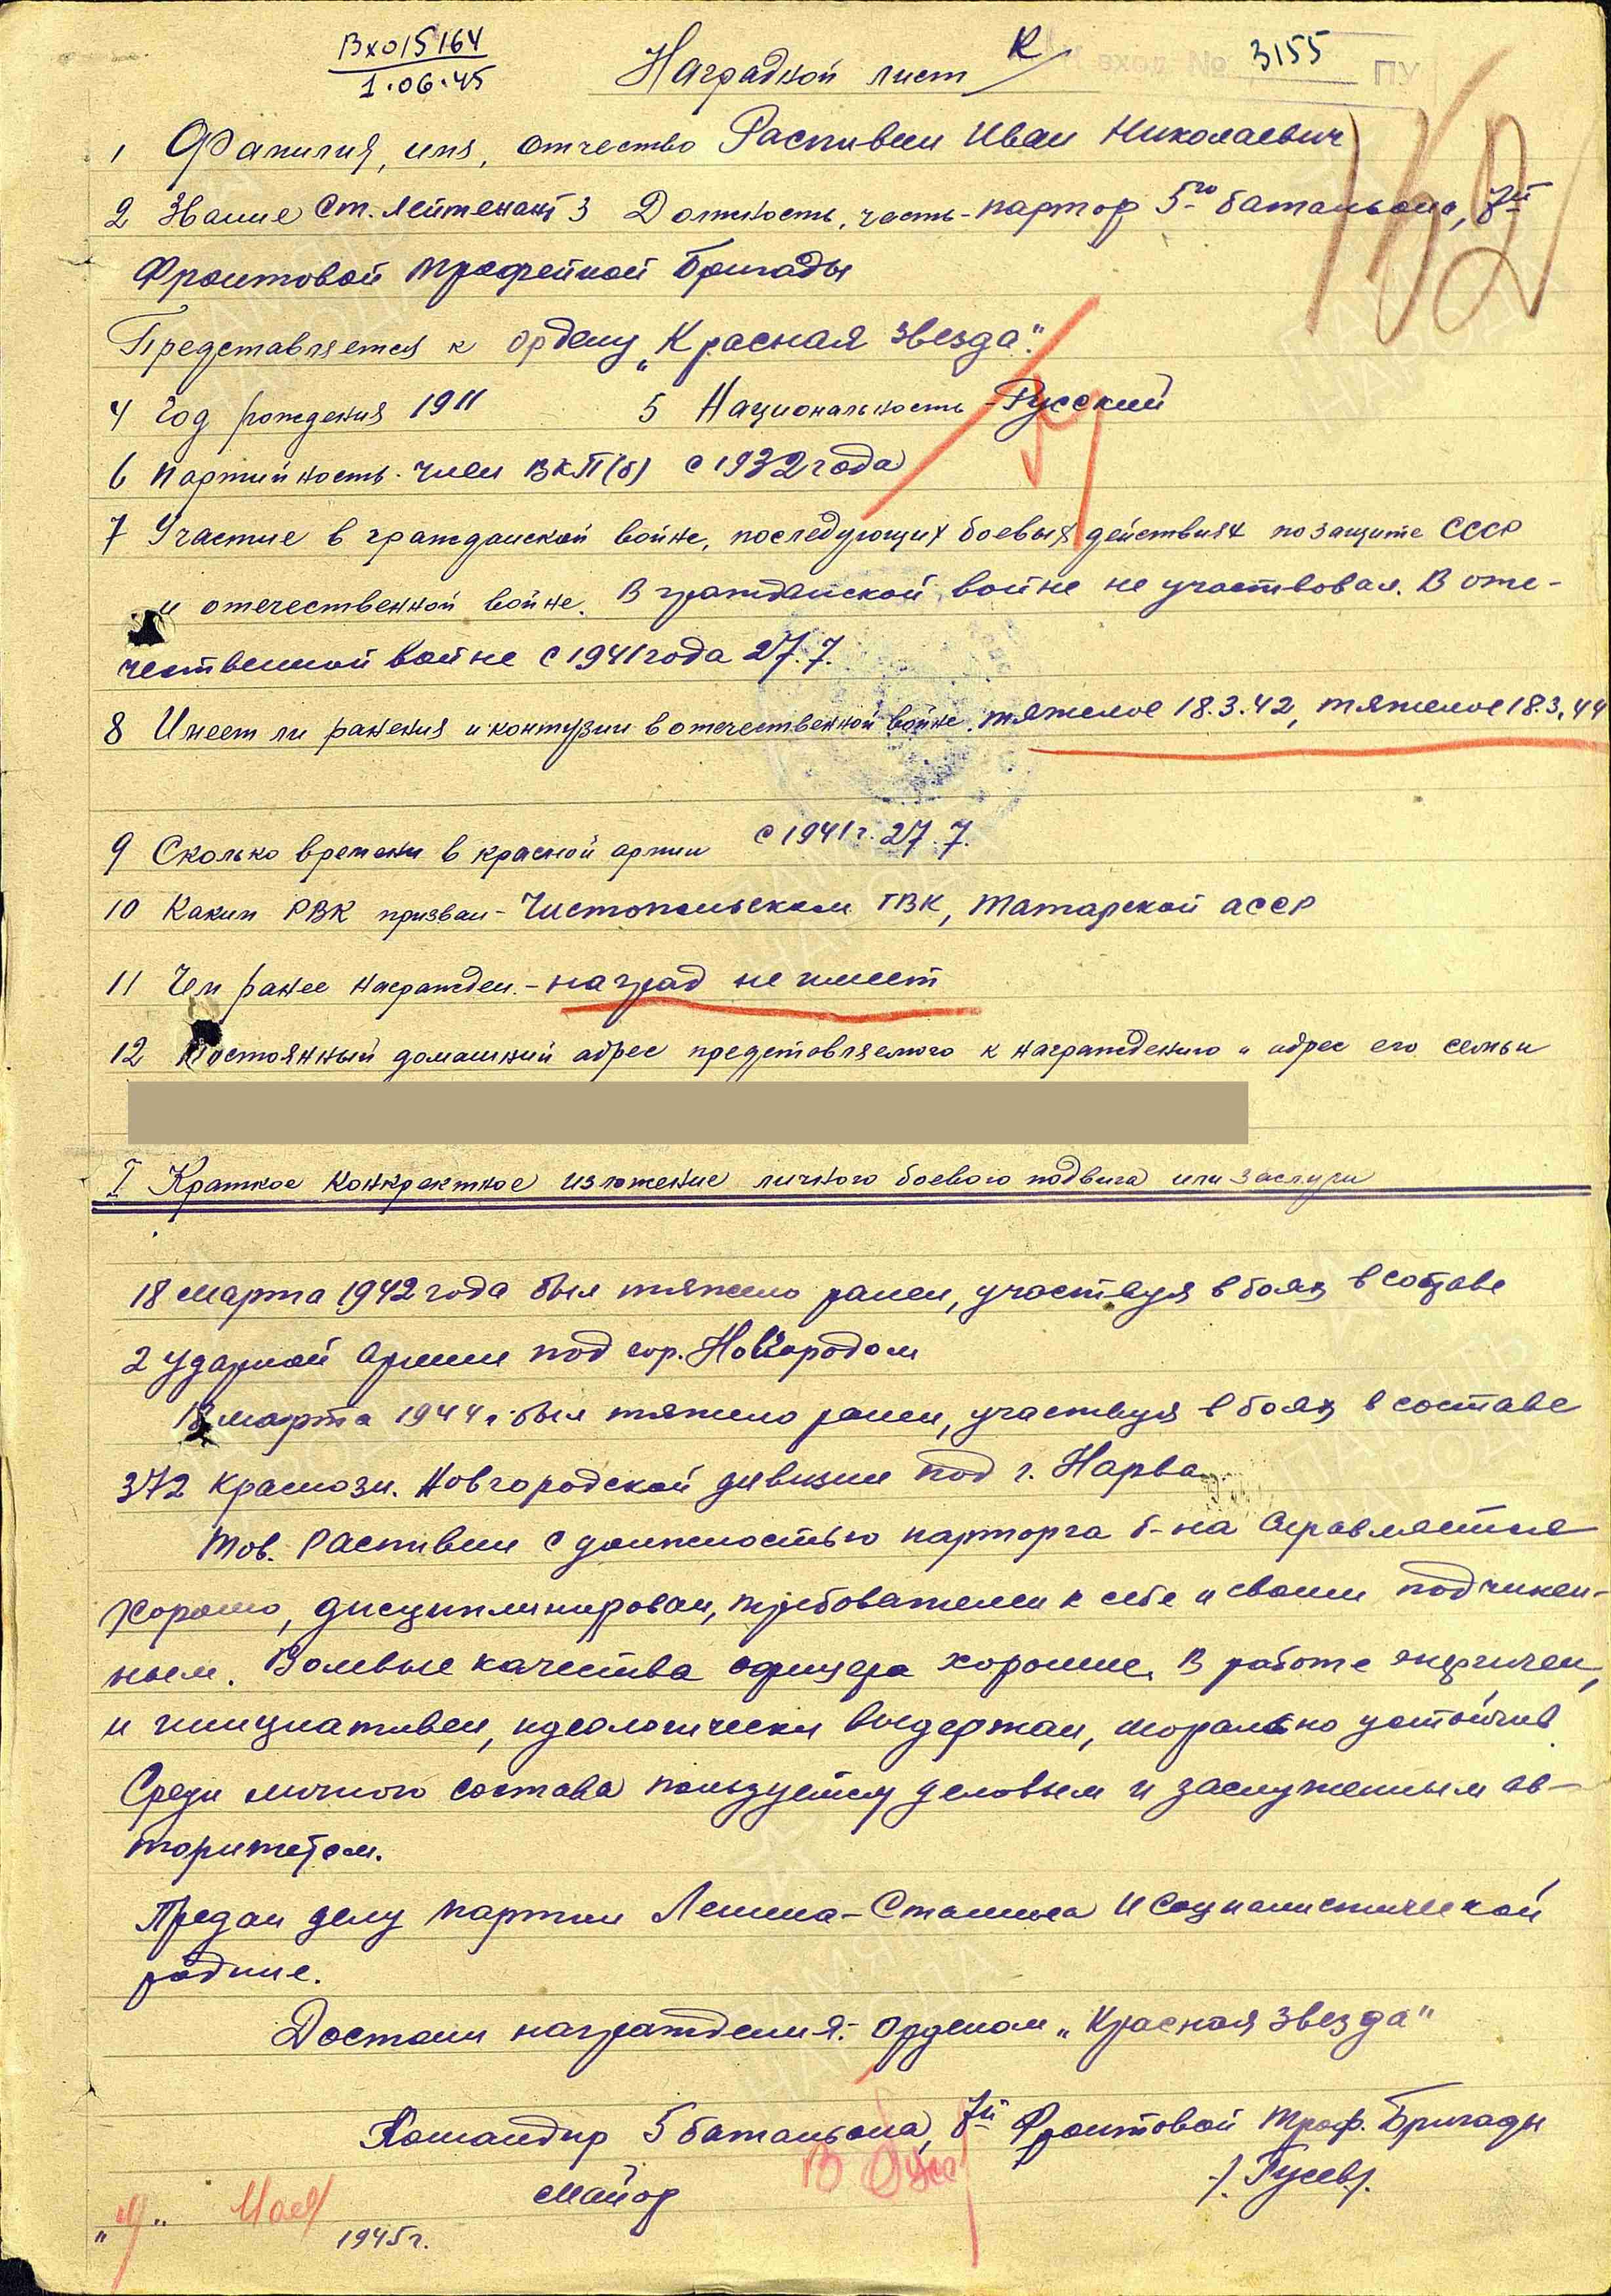 Вхо/5164
1.06.45
Наградной лист
К
вход. № 3155 ПУ
1 Фамилия, имя, отчество Распивин Иван Николаевич
2 Звание Ст. лейтенант 3 Должность, часть - парторг 5го батальона, 7й
Фронтовой трофейной бригады
Представляется к ордену „Красная звезда".
4 Год рождения 1911 5 Национальность - Русский
6 Партийность - член ВКП(б) с 1932 года
7 Участие в гражданской войне, последующих боевых действиях по защите СССР
и отечественной войне. В гражданской войне не участвовал. В оте-
чественной войне с 1941 года 27.7.
8 Имеет ли ранения и контузии в отечественной войне. тяжелое 18.3.42, тяжелое 18.3.44
9 Сколько времени в красной армии с 1941 г. 27.7.
10 Каким РВК призван - Чистопольским ГВК, Татарской АССР
11 Чем ранее награжден. - наград не имеет
12 Постоянный домашний адрес представляемого к награждению и адрес его семьи
I Краткое конкректное изложение личного боевого подвига или заслуги
18 марта 1942 года был тяжело ранен, участвуя в боях в составе
2 ударной армии под гор. Новгородом
18 марта 1944 г. был тяжело ранен, участвуя в боях в составе
372 краснозн. Новгородской дивизии под г. Нарва
Тов. Распивин с должностью парторга б-на справляется
хорошо, дисциплинирован, требователен к себе и своим подчинен-
ным. Волевые качества офицера хорошие. В работе энергичен,
и инициативен, идеологически выдержан, морально устойчив
Среди личного состава пользуется деловым и заслуженным ав-
торитетом.
Предан делу партии Ленина-Сталина и социалистической
родине.
Достоин награждения:- орденом „Красная звезда"
Командир 5 батальона, 7й Фронтовой Троф. Бригады
Майор /. Гусев/.
„9" Мая 1945 г.